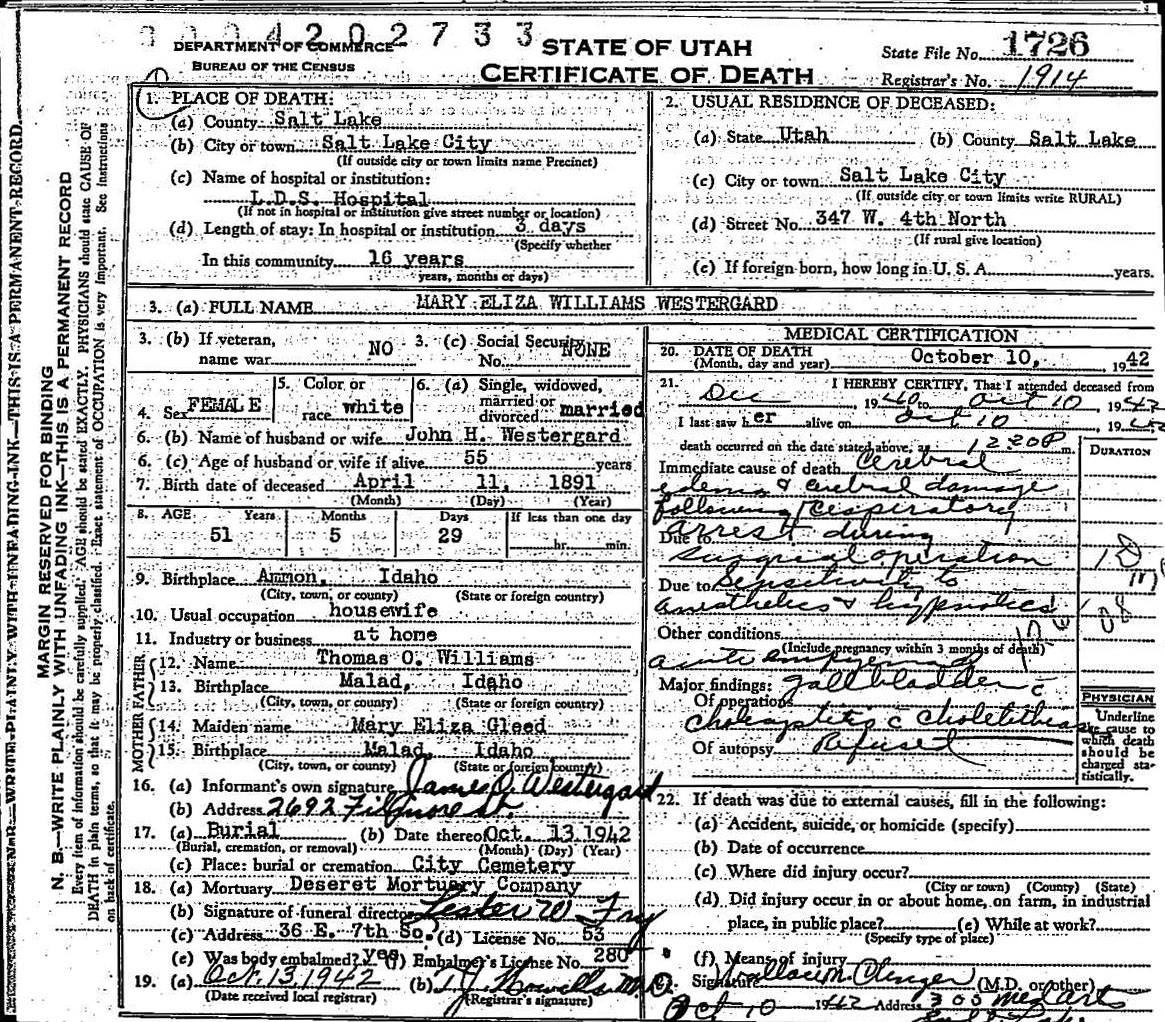 0004202733
DEPARTMENT OF COMMERCE
BUREAU OF THE CENSUS
STATE OF UTAH
CERTIFICATE OF DEATH
State File No. 1726
Registrar's No. 1914
MARGIN RESERVED FOR BINDING
N. B.—WRITE PLAINLY WITH UNFADING INK—THIS IS A PERMANENT RECORD
Every item of information should be carefully supplied. AGE should be stated EXACTLY. PHYSICIANS should state CAUSE OF
DEATH in plain terms, so that it may be properly classified. Exact statement of OCCUPATION is very important. See Instructions
on back of certificate.
1. PLACE OF DEATH:
(a) County Salt Lake
(b) City or town Salt Lake City
(If outside city or town limits name Precinct)
(c) Name of hospital or institution:
L.D.S. Hospital
(If not in hospital or institution give street number or location)
(d) Length of stay: In hospital or institution 3 days
(Specify whether
In this community 16 years
years, months or days)
2. USUAL RESIDENCE OF DECEASED:
(a) State Utah (b) County Salt Lake
(c) City or town Salt Lake City
(If outside city or town limits write RURAL)
(d) Street No. 347 W. 4th North
(If rural give location)
(e) If foreign born, how long in U. S. A. years.
3. (a) FULL NAME MARY ELIZA WILLIAMS WESTERGARD
3. (b) If veteran, name war NO
3. (c) Social Security No. NONE
4. Sex FEMALE
5. Color or race white
6. (a) Single, widowed, married or divorced married
6. (b) Name of husband or wife John H. Westergard
6. (c) Age of husband or wife if alive 55 years
7. Birth date of deceased April 11, 1891
(Month) (Day) (Year)
8. AGE Years Months Days If less than one day
51 5 29 hr. min.
9. Birthplace Ammon, Idaho
(City, town, or county) (State or foreign country)
10. Usual occupation housewife
11. Industry or business at home
FATHER
12. Name Thomas O. Williams
13. Birthplace Malad, Idaho
(City, town, or county) (State or foreign country)
MOTHER
14. Maiden name Mary Eliza Gleed
15. Birthplace Malad, Idaho
(City, town, or county) (State or foreign country)
16. (a) Informant's own signature James O. Westergard
(b) Address 2692 Filmore St.
17. (a) Burial (b) Date thereof Oct. 13 1942
(Burial, cremation, or removal) (Month) (Day) (Year)
(c) Place: burial or cremation City Cemetery
18. (a) Mortuary Deseret Mortuary Company
(b) Signature of funeral director Lester W. Fry
(c) Address 36 E. 7th So. (d) License No. 53
(e) Was body embalmed? yes (f) Embalmer's License No. 280
19. (a) Oct. 13, 1942 (b) T.J.
(Date received local registrar) (Registrar's signature)
MEDICAL CERTIFICATION
20. DATE OF DEATH October 10, 1942
(Month, day and year)
21. I HEREBY CERTIFY, That I attended deceased from
Dec 1940 to Oct 10 1942
I last saw her alive on Oct 10 1942
death occurred on the date stated above, at 12 20 P m.
DURATION
Immediate cause of death Cerebral
edema & cerebral damage
following respiratory
Due to arrest during
surgical operation
Due to Sensitivity to
anesthetics & hypnotics
Other conditions
(Include pregnancy within 3 months of death)
acute empyema
Major findings: gall bladder c
Of operations
cholecystitis c cholelithiasis
Of autopsy Refused
PHYSICIAN
Underline
the cause to
which death
should be
charged sta-
tistically.
22. If death was due to external causes, fill in the following:
(a) Accident, suicide, or homicide (specify)
(b) Date of occurrence
(c) Where did injury occur?
(City or town) (County) (State)
(d) Did injury occur in or about home, on farm, in industrial
place, in public place? (e) While at work?
(Specify type of place)
(f) Means of injury
Signature Wallace M. (M.D. or other)
Oct 10 1942 Address 305 Med Arts